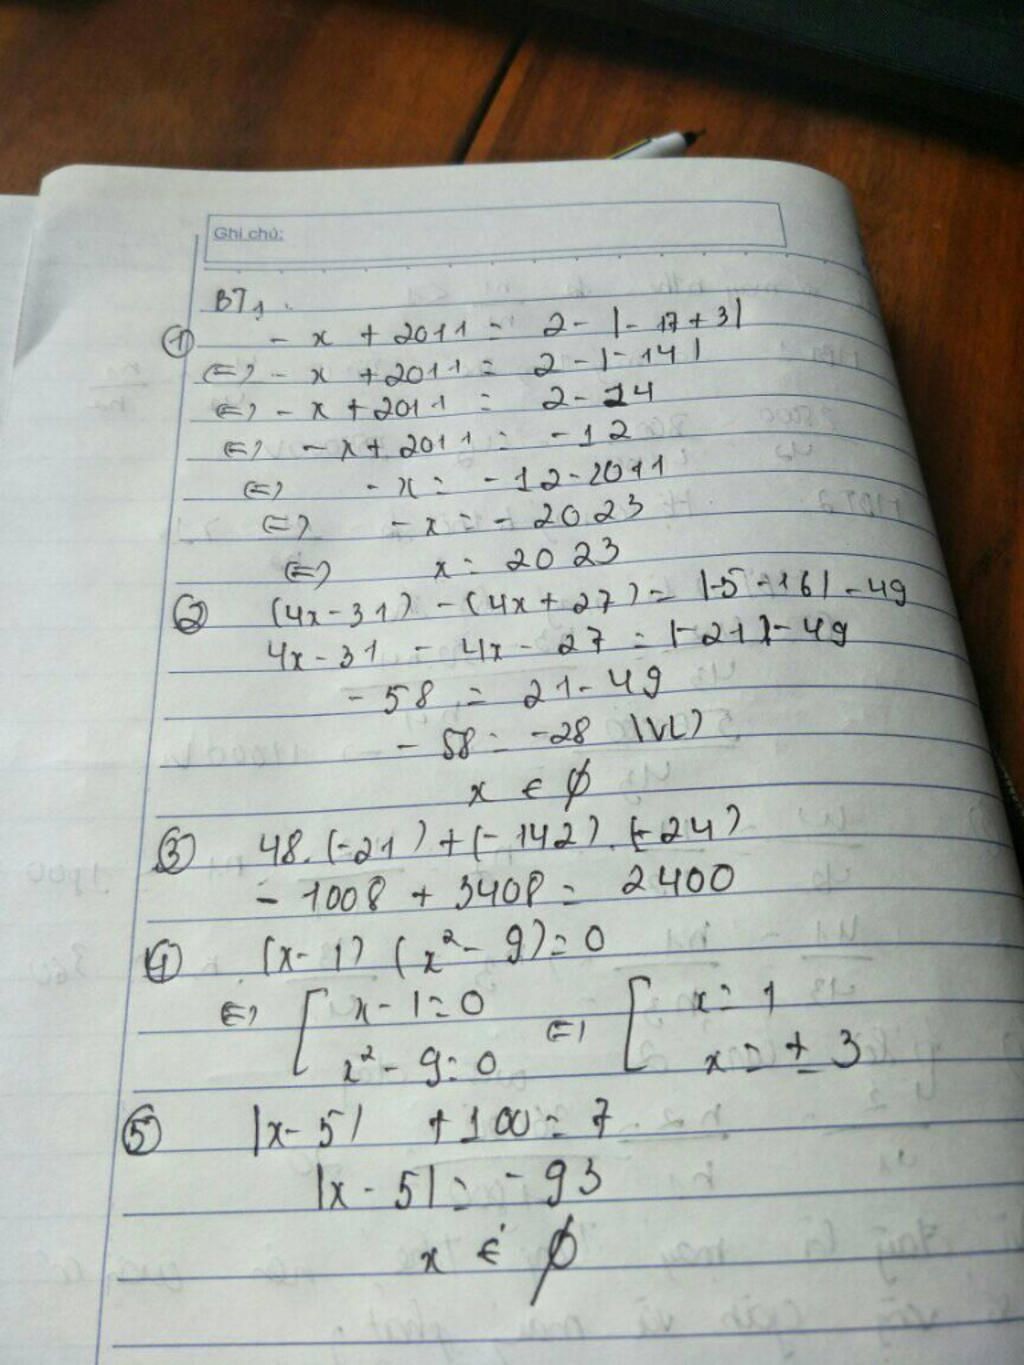 Ghi chú:
BT1.
① - x + 2011 = 2 - |-17+3|
⇔ - x + 2011 = 2 - |-14|
⇔ - x + 2011 = 2 - 14
⇔ - x + 2011 = -12
⇔ - x = -12-2011
⇔ - x = - 2023
⇔ x = 2023
② (4x-31) - (4x+27) = |-5-16| - 49
4x - 31 - 4x - 27 = |-21| - 49
- 58 = 21 - 49
- 58 = -28 (VL)
x ∈ ∅
③ 48.(-21) + (-142).(-24)
- 1008 + 3408 = 2400
④ (x-1) (x² - 9) = 0
⇔ [ x - 1 = 0 ⇔ [ x = 1
x² - 9 = 0 x = ± 3
⑤ |x-5| + 100 = 7
|x-5| = -93
x ∈ ∅